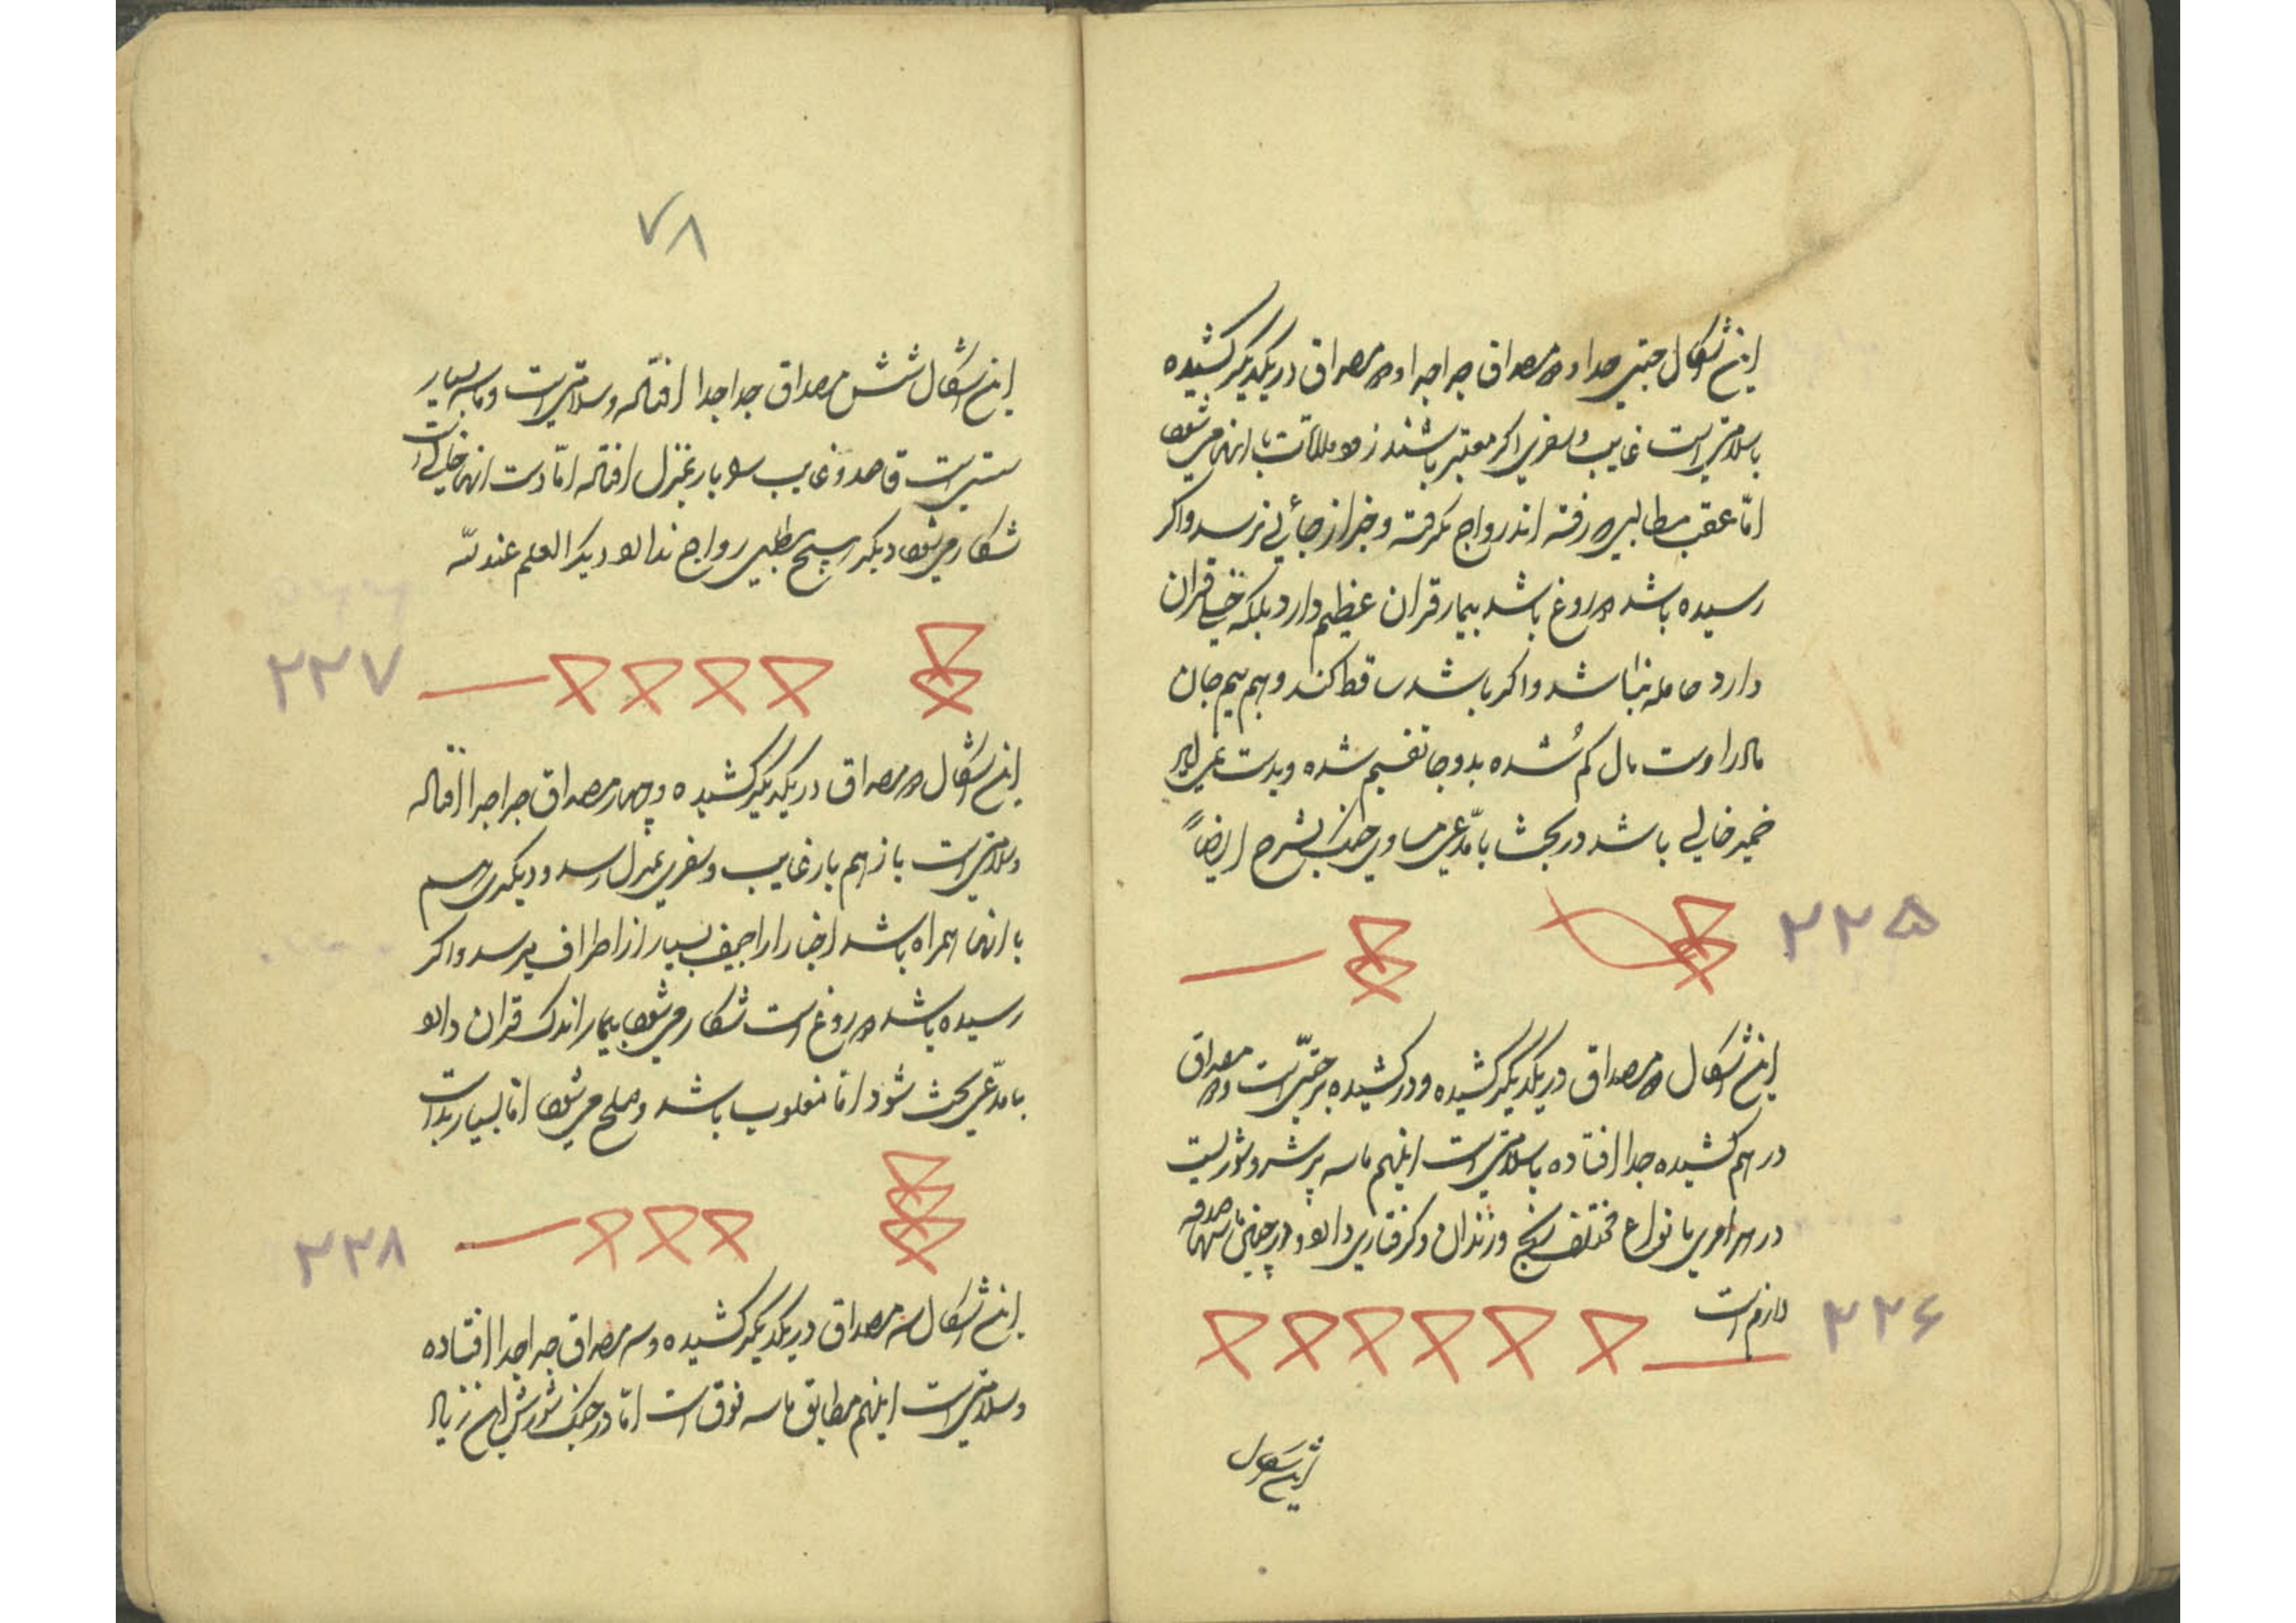 این اشکال جنبی جدا دو مصداق جدا جدا و دو مصداق در یکدیگر کشیده
باسلامتی است غایب و سفری اگر معتبر باشند زود ملاقات با آنها می شود
امّا عقب مطالبی که رفته اند رواج نگرفته و خبر از جائی نرسد و اگر
رسیده باشد دروغ باشد بیمار قران عظیم دارد بلکه خیلی قران
دارد حامله نباشد و اگر باشد سقط کند و هم بیم جان
مادر اوست مال گم شُده بدو جا تقسیم شده و بدست نمی آید
ضمیر خالی باشد در بحث با مدّعی مساوی جنگ بشرح ایضاً
۲۲۵
این اشکال دو مصداق در یکدیگر کشیده و در کشیده بر جنبی است و دو مصداق
در هم کشیده جدا افتاده باسلامتی است اینهم ماسه پر شر و شوریست
در هر امری بانواع مختلف رنج و زندان و گرفتاری دارد و در چنین ماسها صدقه
لازم است
۲۲۶
این اشکال
۷۸
این اشکال شش مصداق جدا جدا افتاده و سلامتی است و ماسه بسیار
سستی است قاصد و غایب سه بار بمنزل افتاده امّا دست آنها خالی است
شکار می شود دیگر هیچ مطلبی رواج ندارد دیگر العلم عند الله
۲۲۷
این اشکال دو مصداق در یکدیگر کشیده و چهار مصداق جدا جدا افتاده
و سلامتی است باز هم بار غایب و سفری بمنزل رسد و دیگری هم
با آنها همراه باشد اخبار اراجیف بسیار از اطراف میرسد و اگر
رسیده باشد دروغ است شکار می شود بیمار اندک قران دارد
با مدّعی بحث شود امّا مغلوب باشد و صلح می شود امّا بسیار بد است
۲۲۸
این اشکال سه مصداق در یکدیگر کشیده و سه مصداق جدا جدا افتاده
و سلامتی است اینهم مطابق ماسه فوق است امّا در جنگ شورش این زیاد